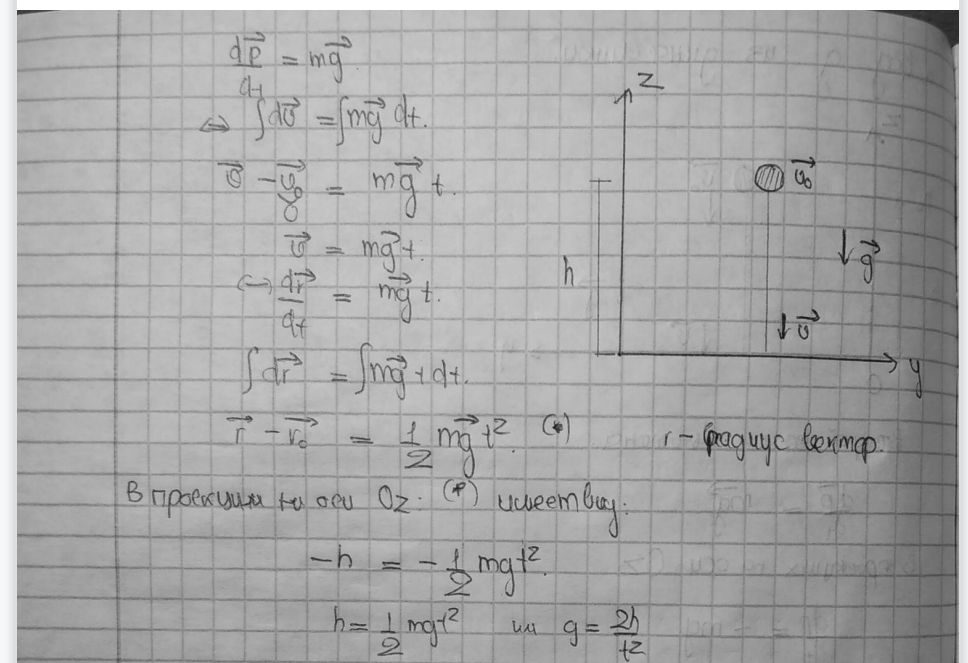 dp⃗/dt = mg⃗
⇔ ∫dv⃗ = ∫mg⃗ dt.
v⃗ - v⃗₀ = mg⃗ t.
0
v⃗ = mg⃗t.
(↔) dr⃗/dt = mg⃗ t.
∫dr⃗ = ∫mg⃗ t dt.
r⃗ - r⃗₀ = 1/2 mg⃗ t². (*)
r - радиус вектор.
В проекции на оси Oz: (*) имеет вид:
-h = -1/2 mgt².
h = 1/2 mgt² или g = 2h/t²
z
v⃗₀
h
g⃗
v⃗
y